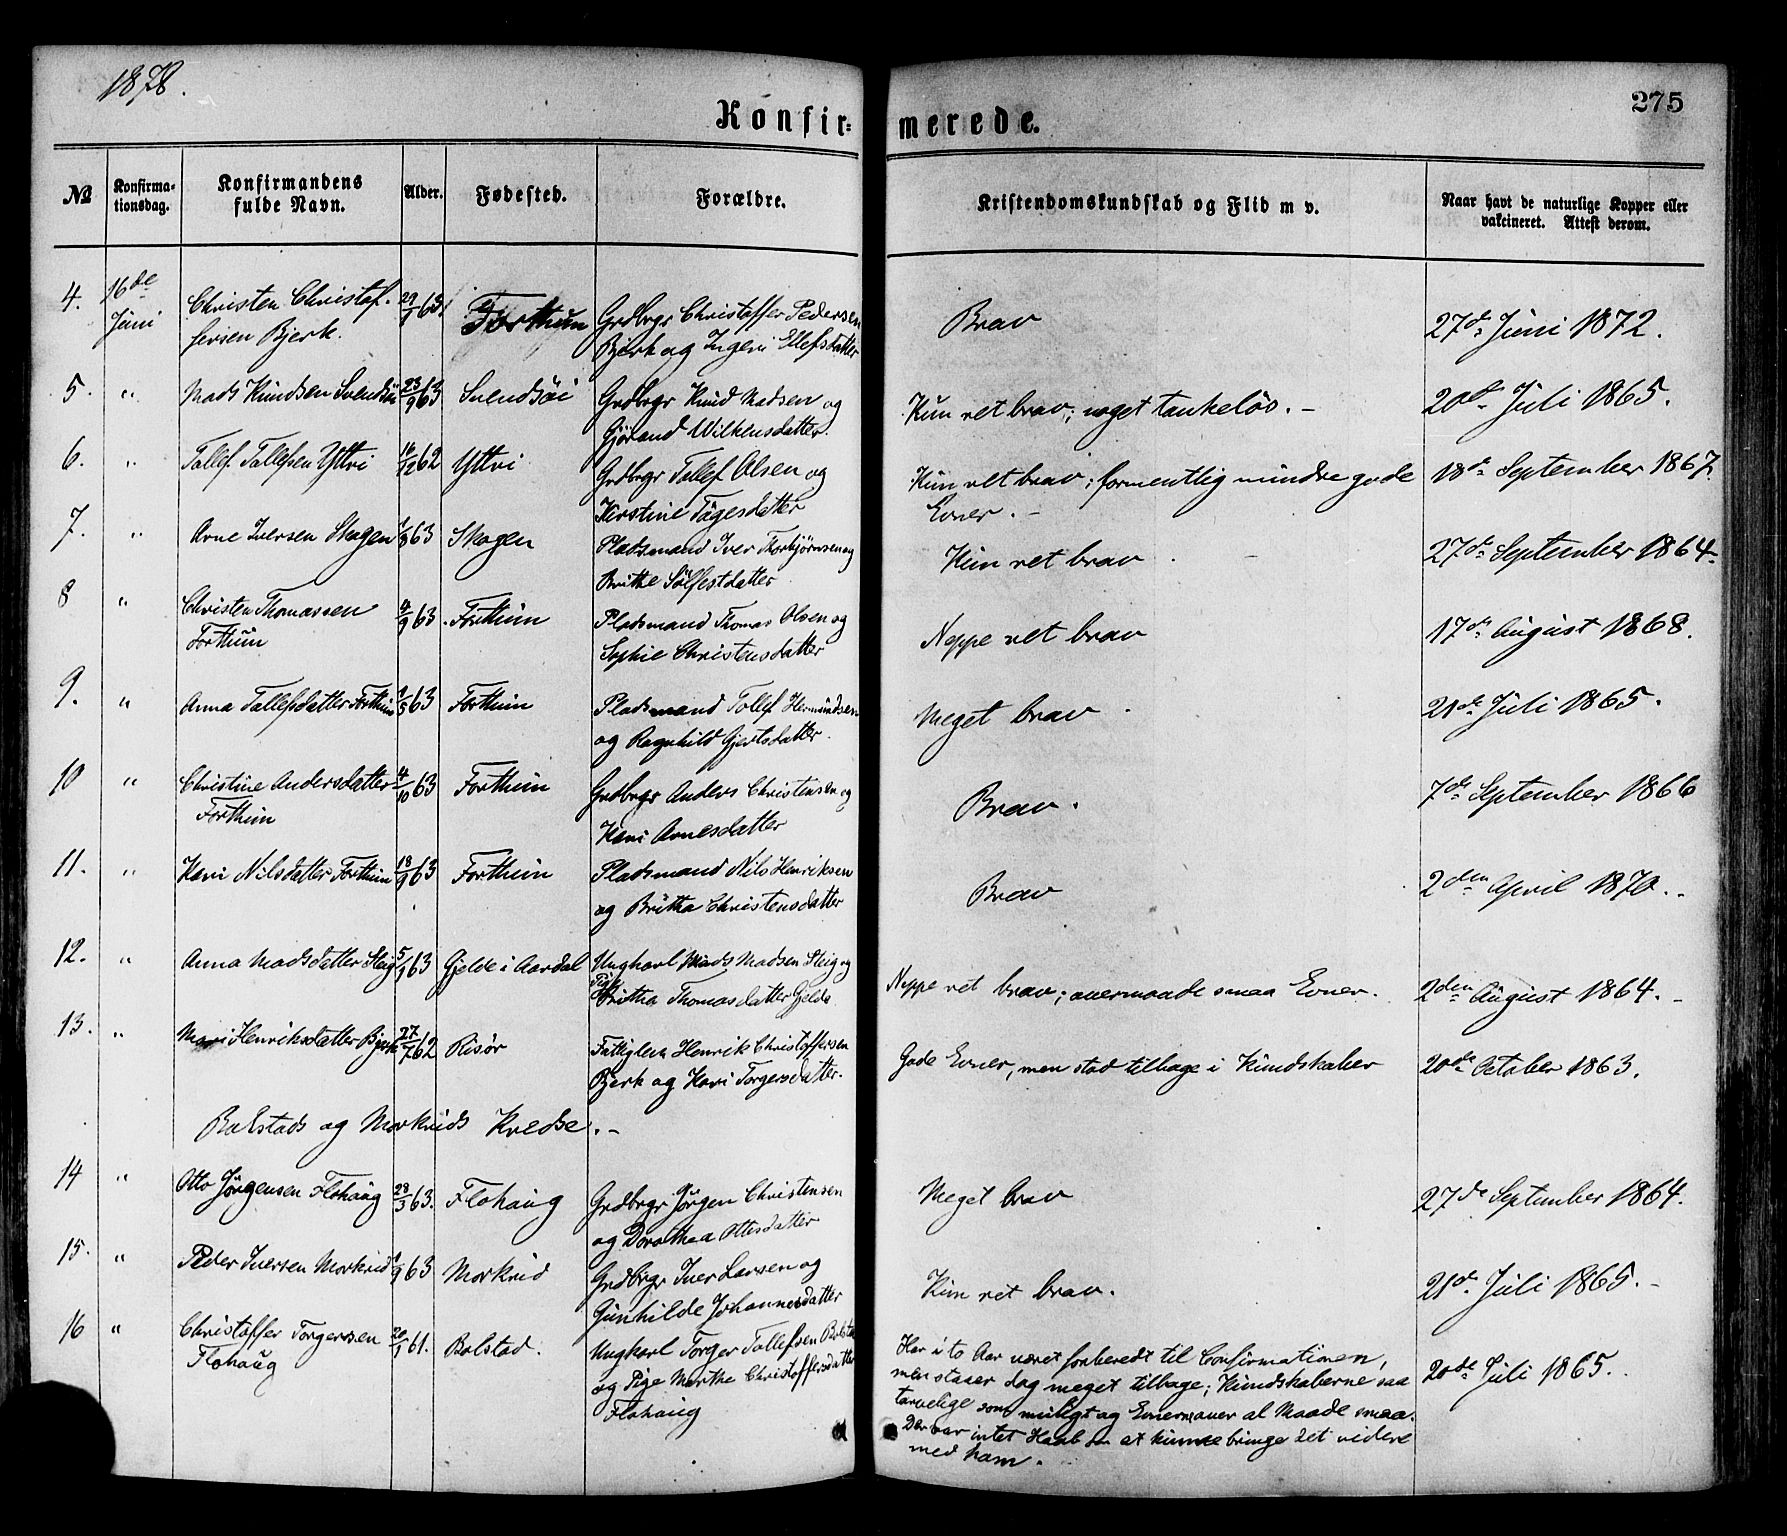 1878.
275
Konfir=
merede.
№
Konfirma-
tionsdag.
Konfirmandens
fulde Navn.
Alder.
Fødested.
Forældre.
Kristendomskundskab og Flid m v.
Naar havt de naturlige Kopper eller
vakcineret. Attest derom.
4. 16de Juni Christen Christof- 29/1 63. Forthun Grdbrgr Christoffer Pedersen Brav 27de Juni 1872.
fersen Bjerk. Bjerk og Ingeri Ellefsdatter
5. " Mads Knudsen Svendsöi 23/9 63 Svendsöi Grdbrgr Knud Madsen og Kun ret brav; noget tankelös. - 20de Juli 1865.
Gjörand Wilkensdatter.
6. " Tollef Tollefsen Yttri 16/12 62 Yttri Grdbrgr Tollef Olsen og Kun ret brav; formentlig mindre gode 18de September 1867.
Kirstine Tagesdatter Evner. -
7. " Arne Iversen Skagen 1/8 63 Skagen Pladsmand Iver Thorbjörnsen og Kun ret brav 27de September 1864-
Brithe Sölfestdatter
8 " Christen Thomassen 4/9 63. Forthun Pladsmand Thomas Olsen og Neppe ret brav 17de August 1868.
Forthun Sophie Christensdatter
9. " Anna Tollefsdatter Forthun 1/5 63 Forthun Pladsmand Tollef Hermundsen Meget brav 21de Juli 1865.
og Ragnhild Gjertsdatter.
10 " Christine Andersdatter 4/10 63 Forthun Grdbrgr Anders Christensen og Brav. 7de September 1866
Forthun Kari Arnesdatter
11. " Kari Nilsdatter Forthun 18/9 63 Forthun Pladsmand Nils Henriksen Brav 2den April 1870. -
og Britha Christensdatter
12. " Anna Madsdatter Steig 5/1 63 Gjelde i Aardal Ungkarl Mads Madsen Steig og Neppe ret brav; overmaade smaa Evner. 2den August 1864. -
Pige Britha Thomasdatter Gjelde
13. " Mari Henriksdatter Bjerk 27/7 62 Risör Fattiglem Henrik Christoffersen Gode Evner, men stod tilbage i Kundskaber 20de October 1863.
Bjerk og Kari Torgersdatter.
Bolstads og Morkrids Kredse. -
14 " Otto Jörgensen Flohaug 28/3 63. Flohaug Grdbrgr Jörgen Christensen Meget brav 27de September 1864.
og Dorothea Ottesdatter
15. " Peder Iversen Morkrid 1/9 63 Morkrid Grdbrgr Iver Larsen og Kun ret brav. 21de Juli 1865. -
Gunhilde Johannesdatter
16 " Christoffer Torgersen 20/1 61. Bolstad. Ungkarl Torger Tollefsen Bolstad Har i to Aar været forberedt til Confirmationen, 20de Juli 1865.
Flohaug og Pige Marthe Christoffersdatter men staaer dog meget tilbage; Kundskaberne saa
Flohaug tarvelige som muligt og Evnerne over al Maade smaa.
Der var intet Haab om at kunne bringe det videre
med ham.